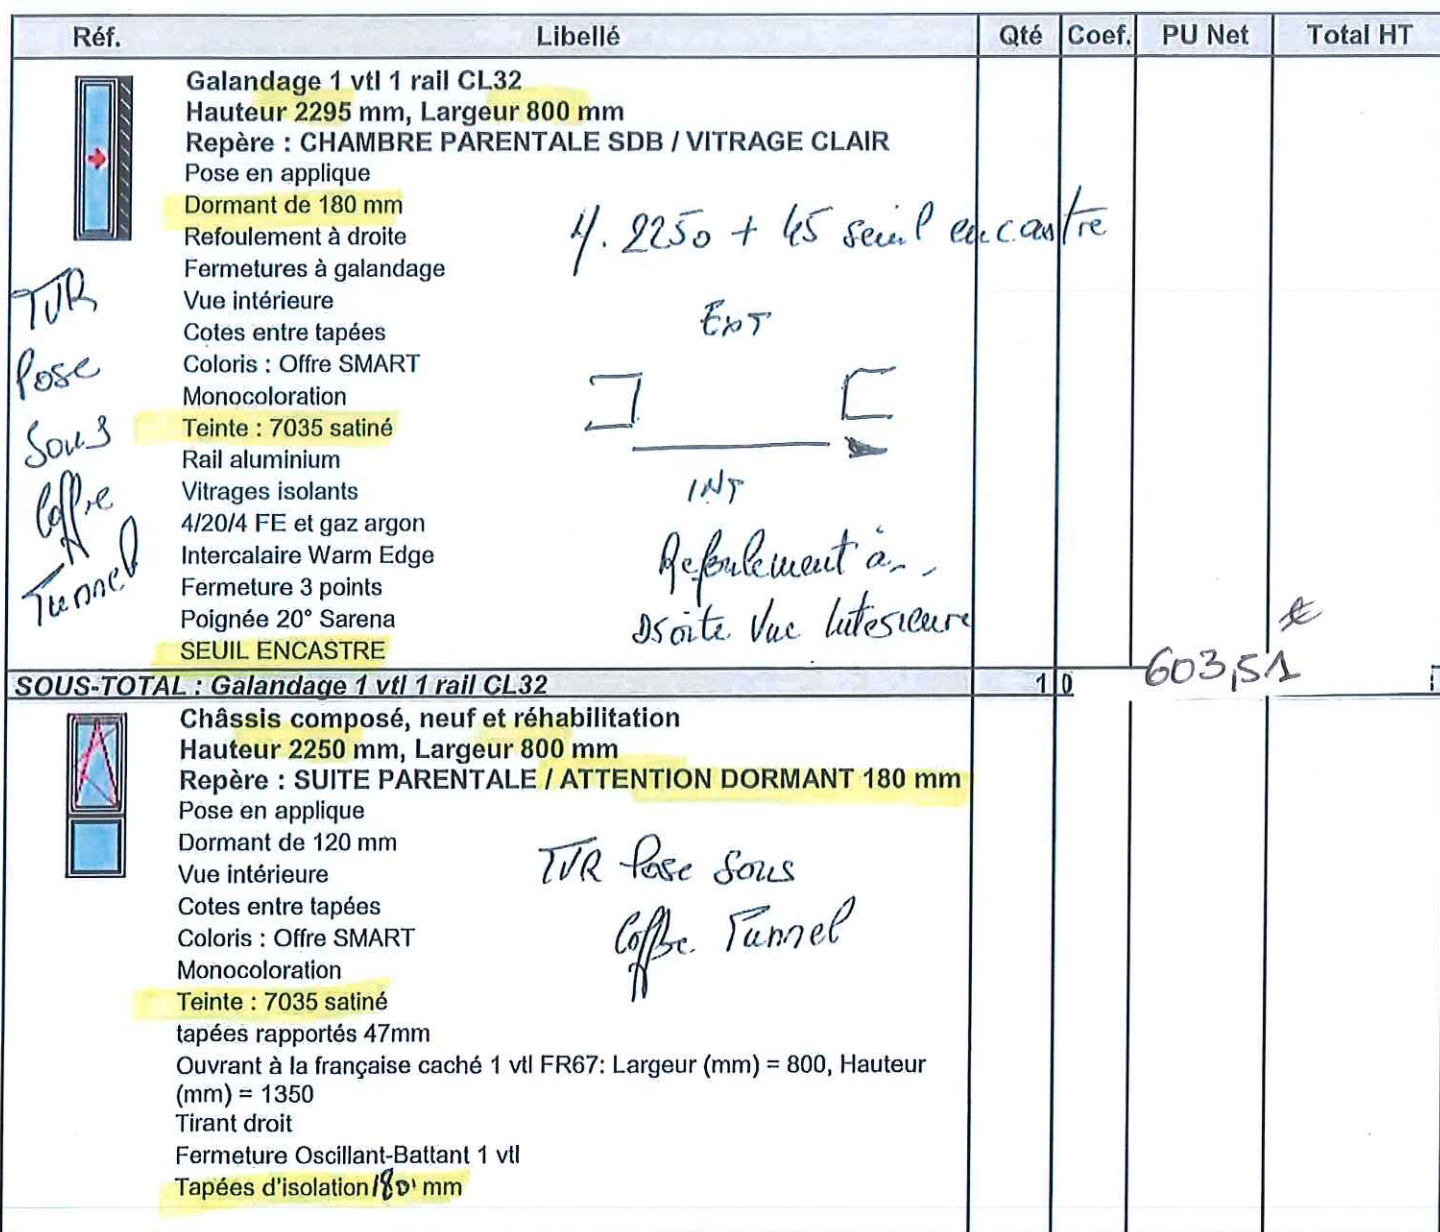 Réf. Libellé Qté Coef. PU Net Total HT
Galandage 1 vtl 1 rail CL32
Hauteur 2295 mm, Largeur 800 mm
Repère : CHAMBRE PARENTALE SDB / VITRAGE CLAIR
Pose en applique
Dormant de 180 mm
Refoulement à droite
H. 2250 + 45 seuil encastre
Fermetures à galandage
Vue intérieure
Cotes entre tapées
Coloris : Offre SMART
Monocoloration
Teinte : 7035 satiné
Rail aluminium
Vitrages isolants
4/20/4 FE et gaz argon
Intercalaire Warm Edge
Fermeture 3 points
Poignée 20° Sarena
SEUIL ENCASTRE
TVR
Pose
Sous
Coffre
Tunnel
EXT
INT
Refoulement à
Droite Vue Interieure
603,51 €
SOUS-TOTAL : Galandage 1 vtl 1 rail CL32 1 0
Châssis composé, neuf et réhabilitation
Hauteur 2250 mm, Largeur 800 mm
Repère : SUITE PARENTALE / ATTENTION DORMANT 180 mm
Pose en applique
Dormant de 120 mm
Vue intérieure
Cotes entre tapées
Coloris : Offre SMART
Monocoloration
Teinte : 7035 satiné
TVR Pose Sous
Coffre Tunnel
tapées rapportés 47mm
Ouvrant à la française caché 1 vtl FR67: Largeur (mm) = 800, Hauteur
(mm) = 1350
Tirant droit
Fermeture Oscillant-Battant 1 vtl
Tapées d'isolation 180 mm